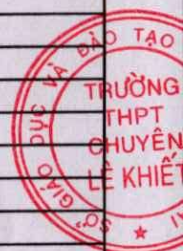 SỞ GIÁO DỤC VÀ ĐÀO TẠO
TRƯỜNG
THPT
CHUYÊN
LÊ KHIẾT